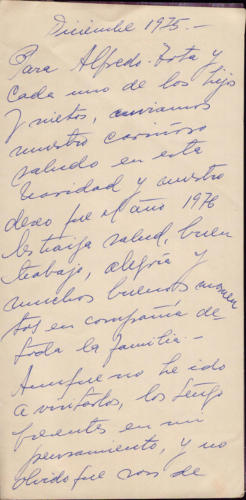 Diciembre 1975.-
Para Alfredo. Zota y
cada uno de los hijos
y nietos, enviamos
nuestro cariñoso
saludo en esta
Navidad y nuestro
deseo que el año 1976
les traiga salud, buen
trabajo, alegría y
muchos buenos momen
tos en compañía de
toda la familia.-
Aunque no he ido
a visitarlos, los tengo
presentes en mi
pensamiento, y no
olvido que son de